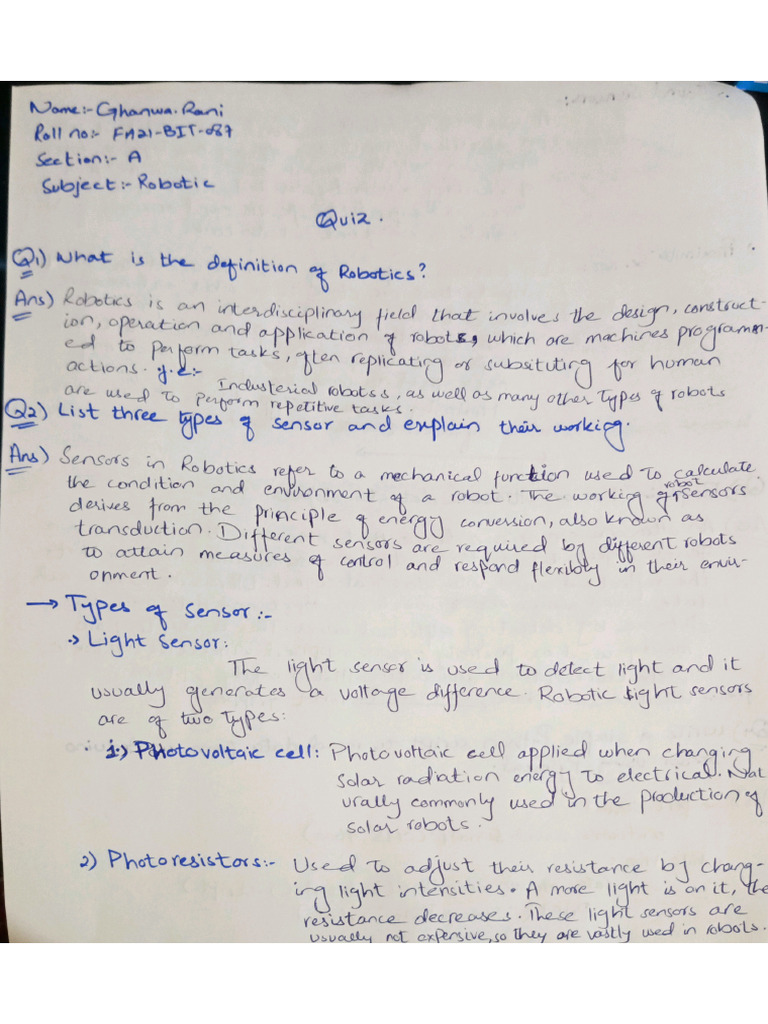 Name:- Ghanwa Rani
Roll no:- FA21-BIT-087
Section:- A
Subject:- Robotic
Quiz.
Q1) What is the definition of Robotics?
Ans) Robotics is an interdisciplinary field that involves the design, construct-
ion, operation and application of robots, which are machines programm-
ed to perform tasks, often replicating or subsituting for human
actions. i.e:- Industerial robotss, as well as many other types of robots
are used to perform repetitive tasks.
Q2) List three types of sensor and explain their working.
Ans) Sensors in Robotics refer to a mechanical function used to calculate
the condition and environment of a robot. The working of robot sensors
derives from the principle of energy conversion, also known as
transduction. Different sensors are required by different robots
to attain measures of control and respond flexibly in their envir-
onment.
→ Types of Sensor:-
•> Light Sensor:
The light sensor is used to detect light and it
usually generates a voltage difference. Robotic light sensors
are of two types:
1.) Photovoltaic cell: Photovoltaic cell applied when changing
solar radiation energy to electrical. Nat
urally commonly used in the production of
solar robots.
2) Photoresistors:- Used to adjust their resistance by chang-
ing light intensities. A more light is on it, the
resistance decreases. These light sensors are
usually not expensive, so they are vastly used in robots.